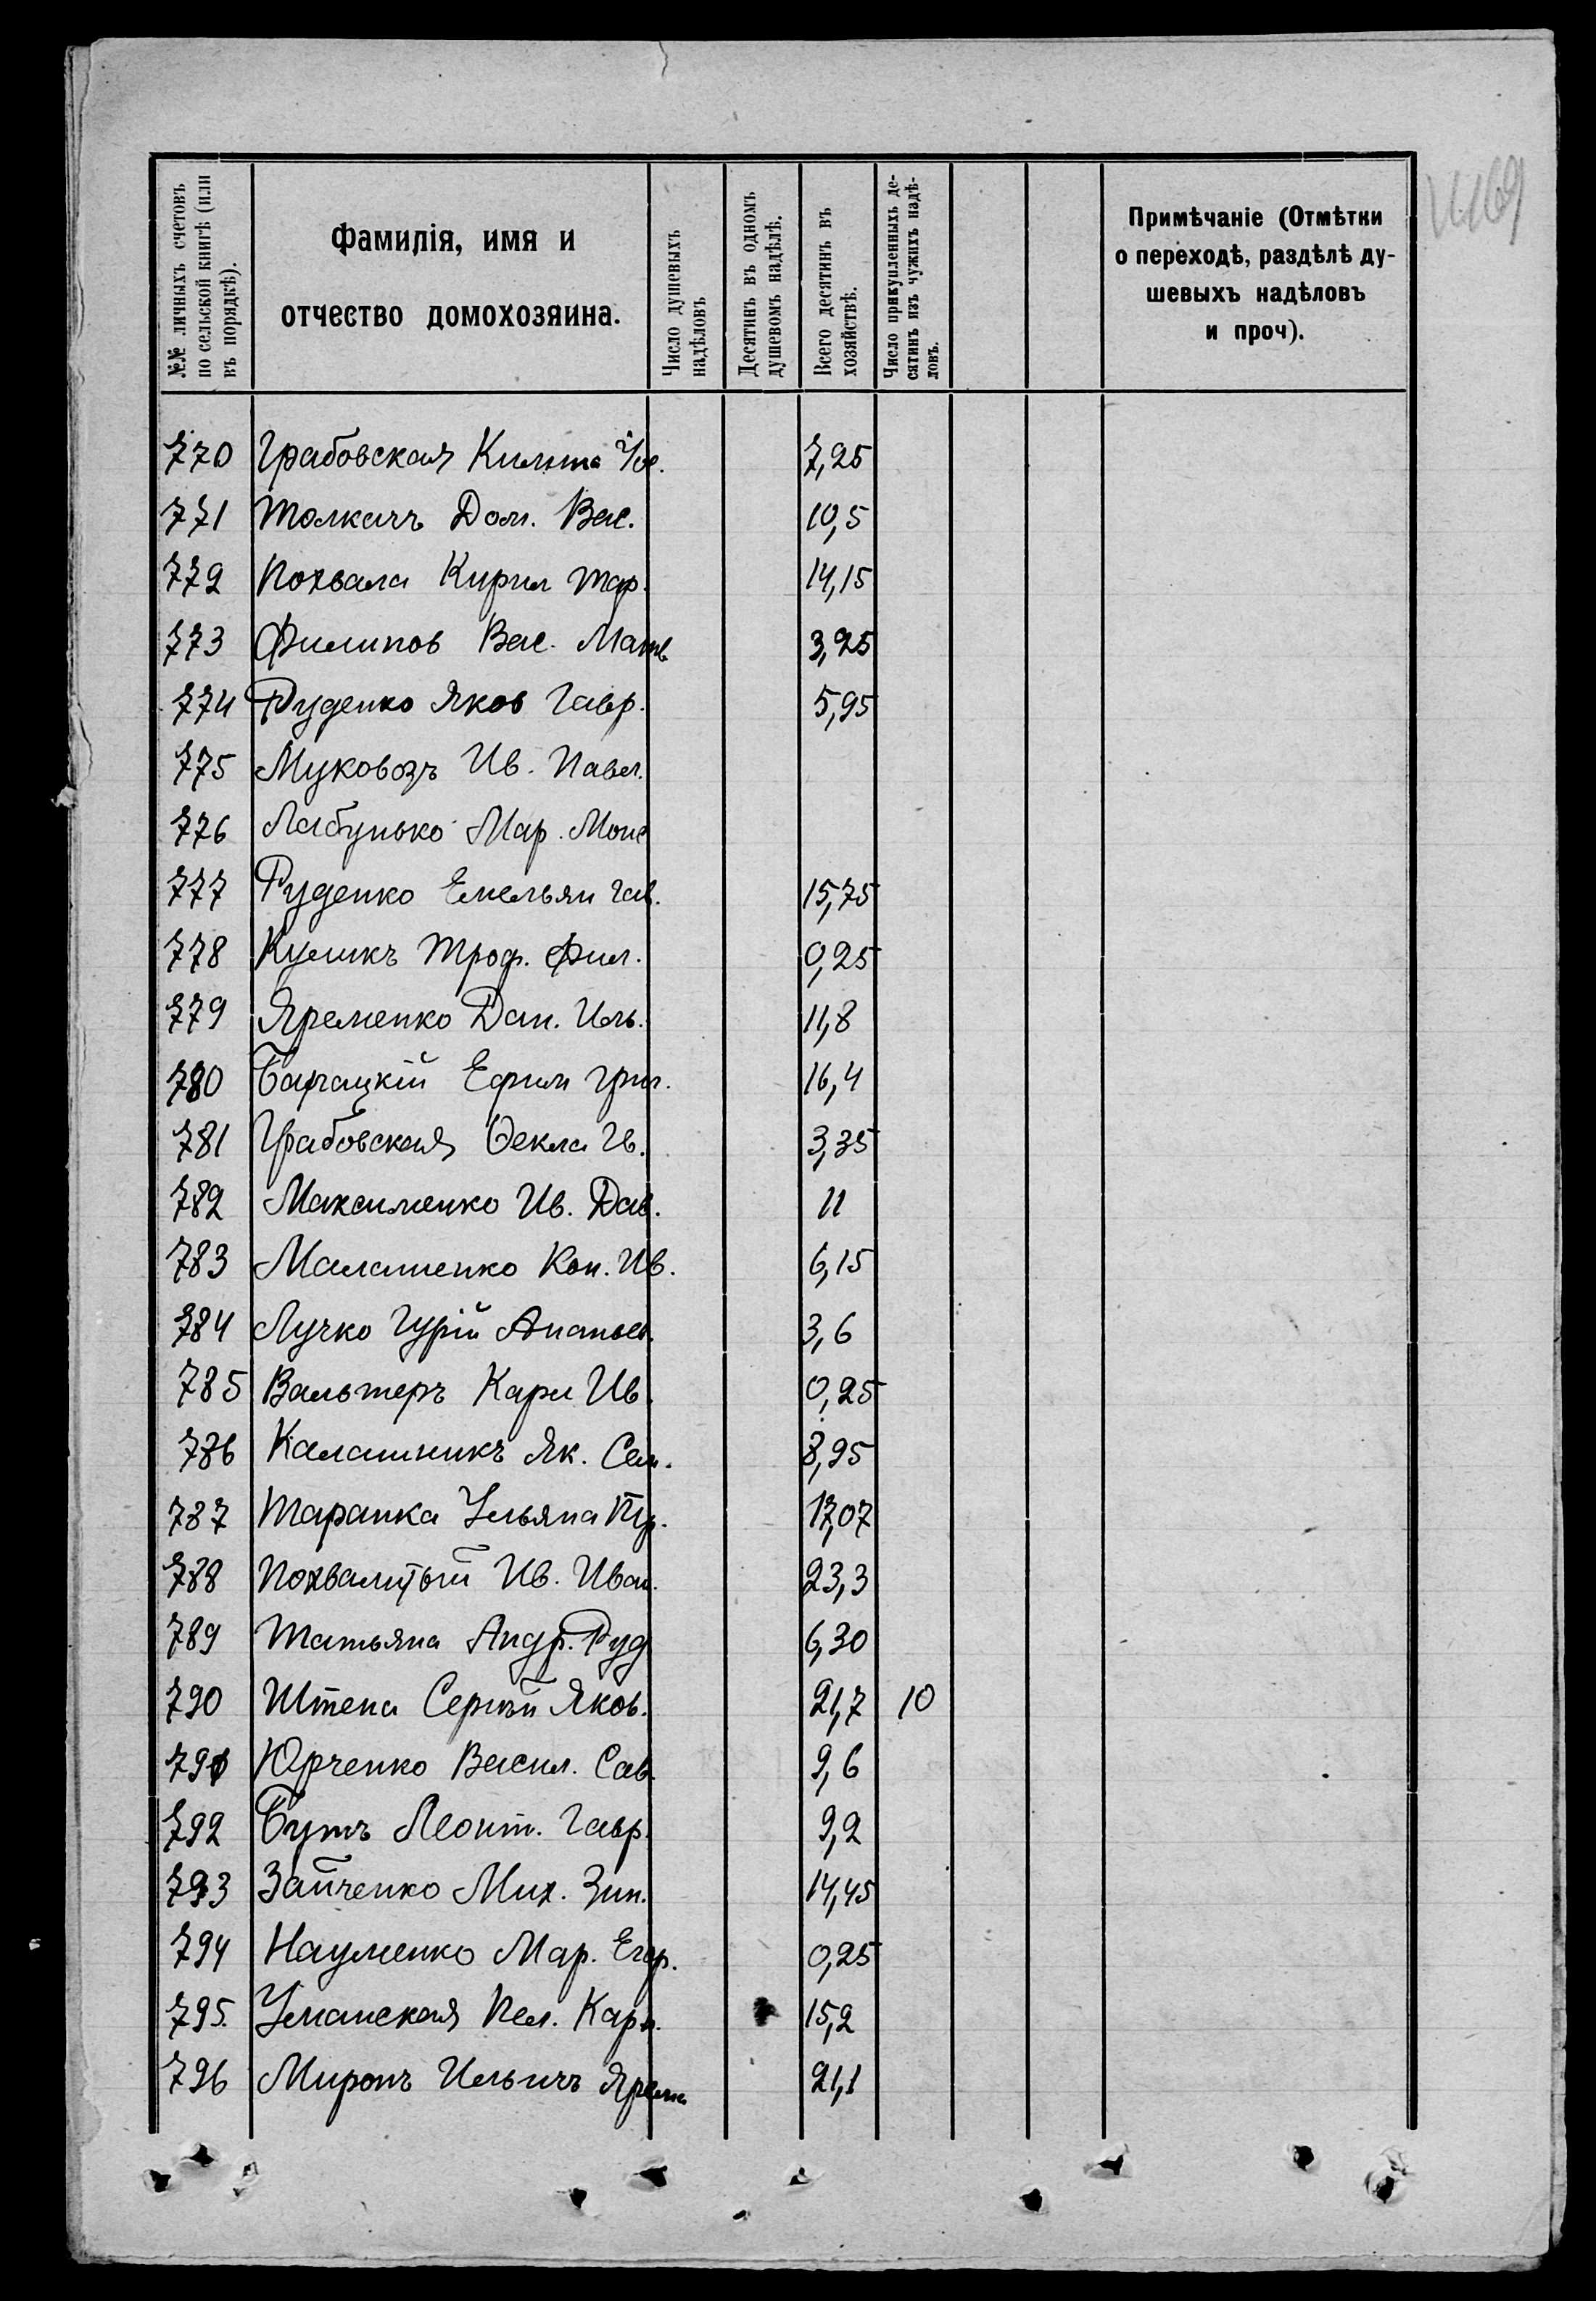 №№ личныхъ счетовъ по сельской книгѣ (или въ порядкѣ).
Фамилія, имя и
отчество домохозяина.
Число душевыхъ надѣловъ
Десятинъ въ одномъ душевомъ надѣлѣ.
Всего десятинъ въ хозяйствѣ.
Число прикупленныхъ десятинъ изъ чужихъ надѣловъ.
Примѣчаніе (Отмѣтки
о переходѣ, раздѣлѣ ду-
шевыхъ надѣловъ
и проч).
770 Грабовская 7,25
771 Толкачъ Дом. Вас. 10,5
772 Похвала Кирил Тар. 14,15
773 Филипов Вас. Матв 3,25
774 Руденко Яков Гавр. 5,95
775 Муковозъ Ив. Павл.
776 Лабунько Мар. Моис
777 Руденко Емельян Гав. 15,75
778 Куликъ Троф. Фил. 0,25
779 Яременко Дан. Иль. 11,8
780 Ефим Григ. 16,4
781 Грабовская Ѳекла Ив. 3,35
782 Максименко Ив. Дав. 11
783 Малашенко Кон. Ив. 6,15
784 Лучко Гурій Ананьев. 3,6
785 Вальтеръ Карл Ив. 0,25
786 Калашникъ Як. Сем. 8,95
787 Таранка Ульяна 17,07
788 Ив. Иван. 23,3
789 Татьяна Андр. Руд 6,30
790 Штепа Сергѣй Яков. 21,7 10
791 Юрченко Васил. Сав. 9,6
792 Бутъ Леонт. Гавр. 9,2
793 Зайченко Мих. Зин. 14,45
794 Науменко Мар. Егор. 0,25
795. Уманская Пел. Карп. 15,2
796 Миронъ Ильичъ Ярем 21,1